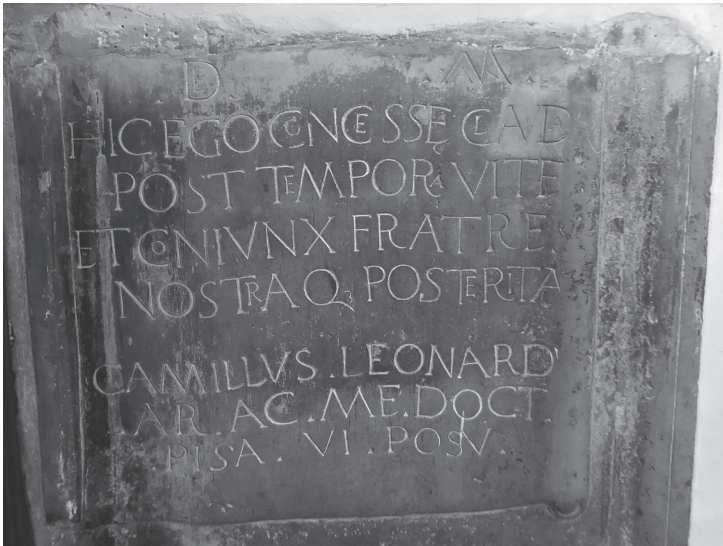 D. M.
HIC EGO CONCESSE CEADE
POST TEMPORA VITE
ET CONIVNX FRATRE
NOSTRAQ3 POSTERITA
CAMILLVS. LEONARD
AR. AC. ME. DOCT.
PISA. VI. POSV.